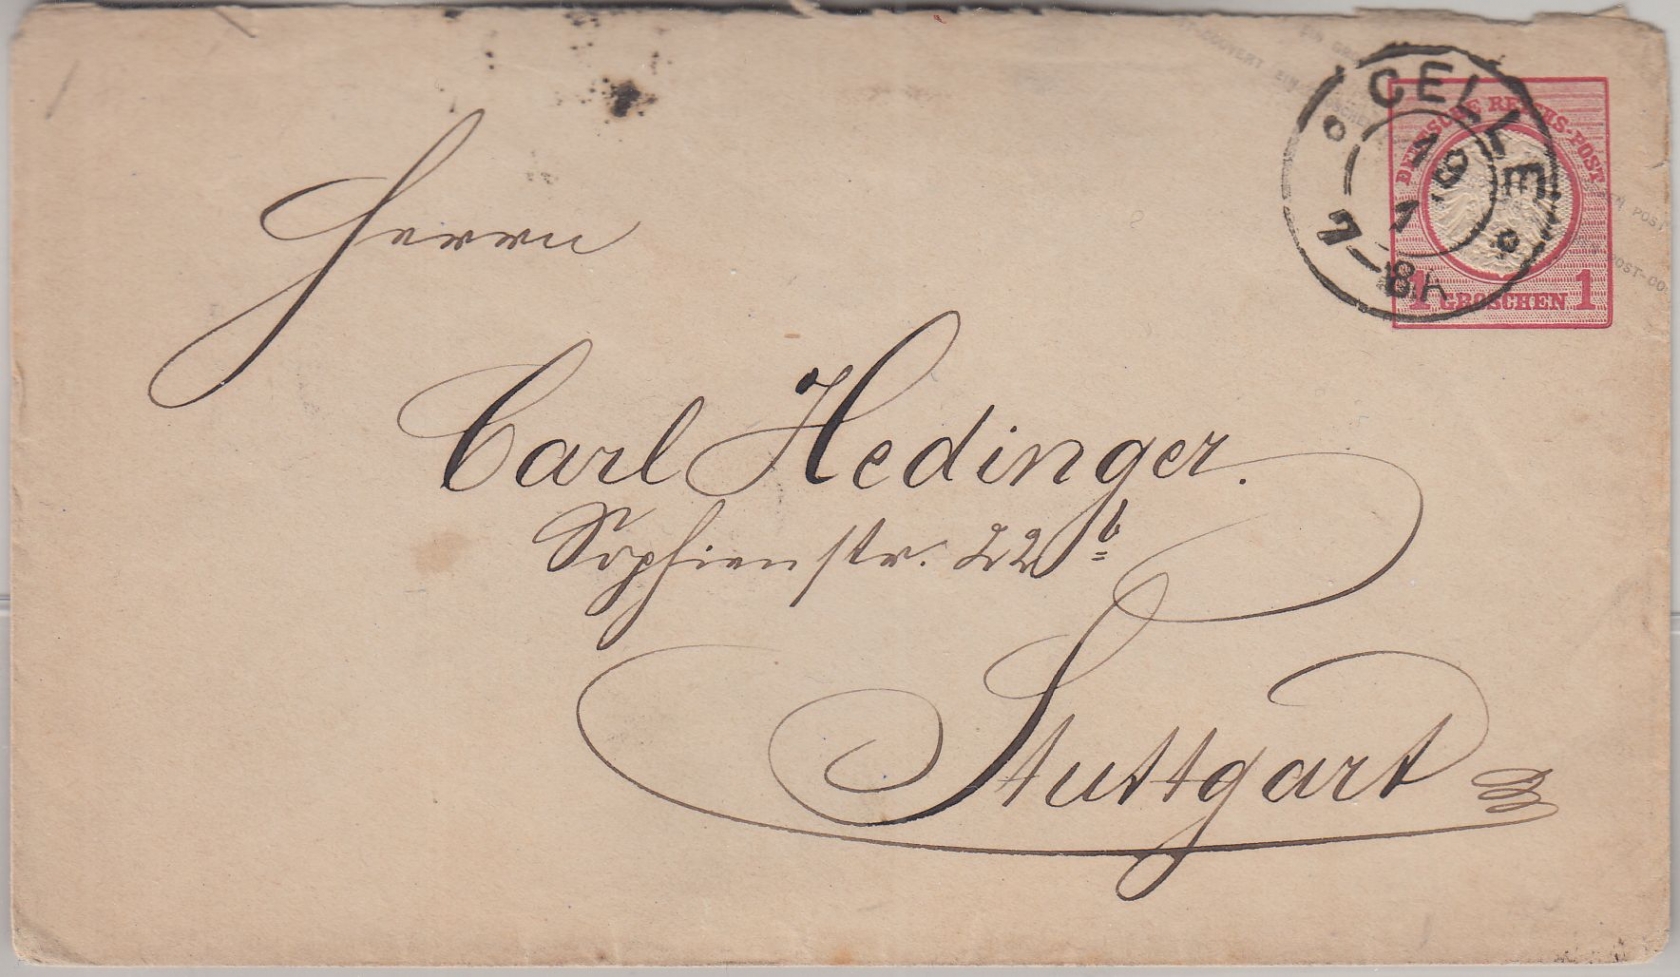 CELLE
19
1
7-8N
DEUTSCHE REICHS-POST
1 GROSCHEN 1
Herrn
Carl Hedinger.
Sophienstr. 22b
Stuttgart